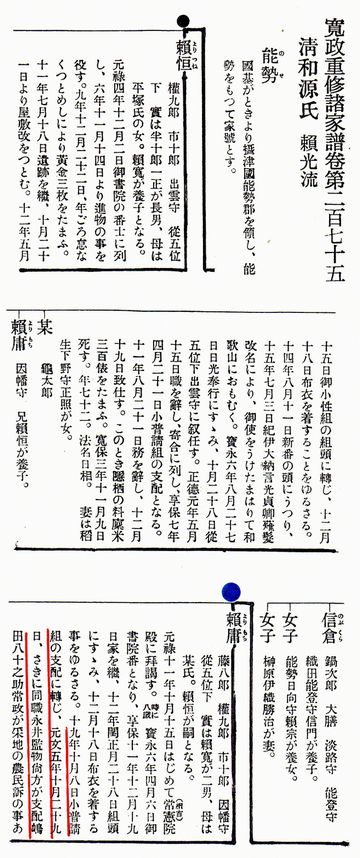 寛政重修諸家譜卷第二百七十五
清和源氏 頼光流
能勢
のせ
國基がときより攝津國能勢郡を領し、能
勢をもつて家號とす。
頼恒
よりつね
權九郎 市十郎 出雲守 從五位
下 實は半十郎一正が長男、母は
平塚氏の女。頼寛が養子となる。
元祿四年十二月二日御書院の番士に列
し、六年十一月十四日より進物の事を
役す。九年十二月二十二日、年ごろ怠な
くつとめしにより黃金三枚をたまふ。
十一年七月十八日遺跡を繼、十月二十
一日より屋敷改をつとむ。十二年五月
十五日御小性組の組頭に轉じ、十二月
十八日布衣を着することをゆるさる。
十四年八月十一日新番の頭にうつり、
十五年七月三日紀伊大納言光貞卿薙髮
改名により、御使をうけたまはりて和
歌山におもむく。寶永六年八月二十七
日日光奉行にすゝみ、十月二十八日從
五位下出雲守に叙任す。正德元年五月
十五日職を辭し、寄合に列し、享保七年
四月二十一日小普請組の支配となる。
十一年八月二十一日務を辭し、十二月
十九日致仕す。このとき隱栖の料廩米
三百俵をたまふ。寬保三年十一月九日
死す。年七十二。法名日相。 妻は稻
生下野守正照が女。
某
龜太郎
頼庸
よりもち
因幡守 兄頼恒が養子。
信倉
のぶくら
鍋次郎 大膳 淡路守 能登守
織田能登守信門が養子。
女子
能勢日向守頼宗が養女。
女子
榊原伊織勝治が妻。
頼庸
よりもち
藤八郎 權九郎 市十郎 因幡守
從五位下 實は頼寛が二男、母は
某氏。頼恒が嗣となる。
元祿十一年十月十五日はじめて常憲院(綱吉)
殿に拜謁す。時に八歳 寶永六年四月六日御
書院番となり、享保十一年十二月十九
日家を繼、十二年閏正月二十八日組頭
にすゝみ、十二月十八日布衣を着する
事をゆるさる。十九年十月八日小普請
組の支配に轉じ、元文五年十月二十九
日、さきに同職永井監物尚方が支配嶋
田八十之助常政が釆地の農民訴の事あ